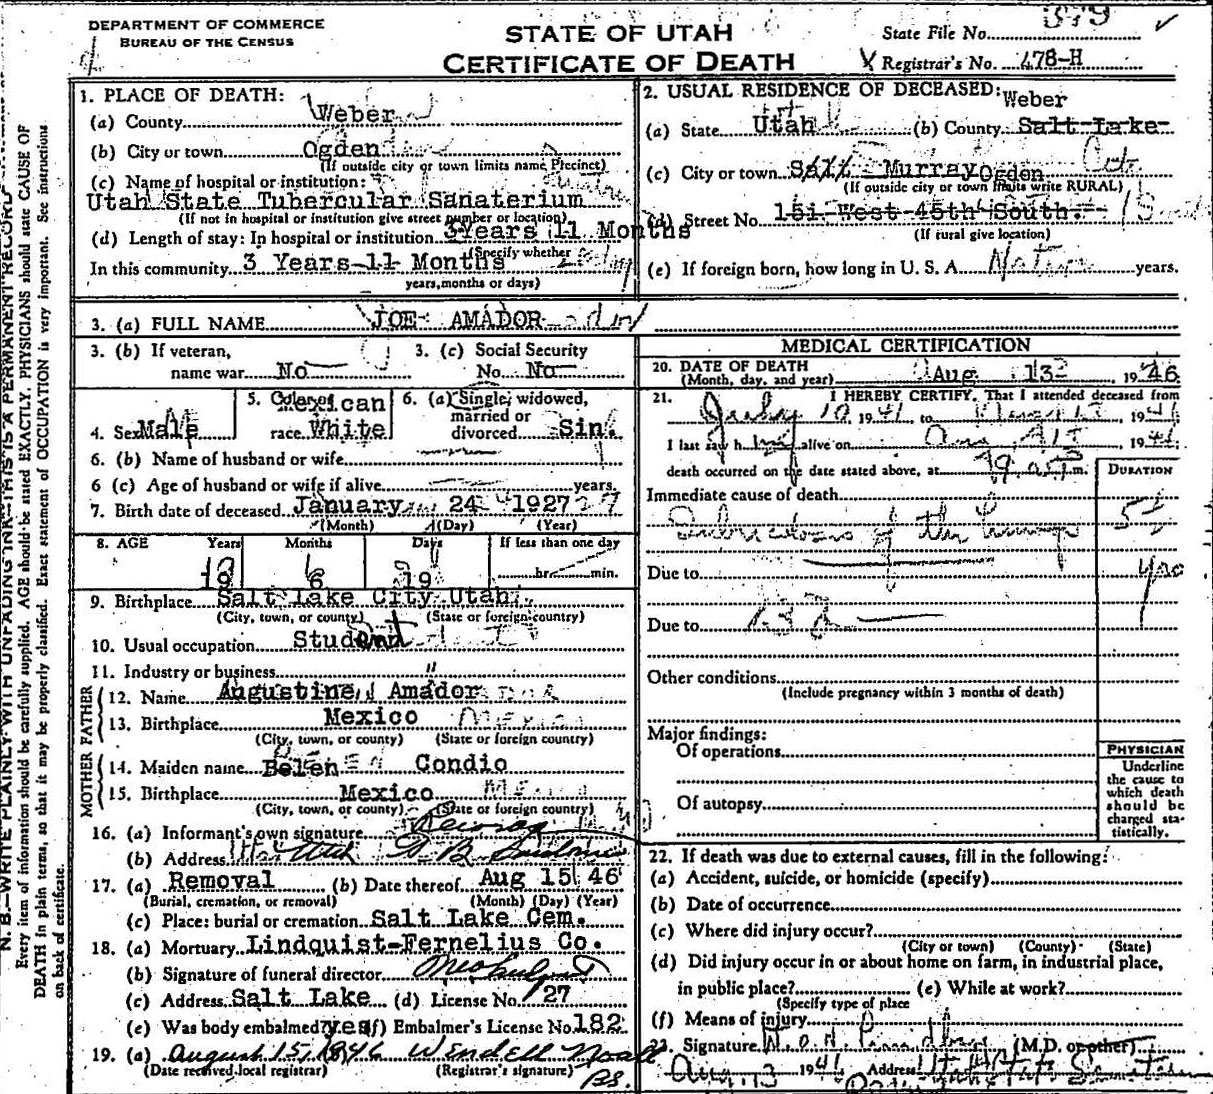 DEPARTMENT OF COMMERCE
BUREAU OF THE CENSUS
STATE OF UTAH
CERTIFICATE OF DEATH
State File No.
Registrar's No. 478-H
N. B.—WRITE PLAINLY WITH UNFADING INK—THIS IS A PERMANENT RECORD
Every item of information should be carefully supplied. AGE should be stated EXACTLY. PHYSICIANS should state CAUSE OF
DEATH in plain terms, so that it may be properly classified. Exact statement of OCCUPATION is very important. See instructions
on back of certificate.
1. PLACE OF DEATH:
(a) County Weber
(b) City or town Ogden
(If outside city or town limits name Precinct)
(c) Name of hospital or institution:
Utah State Tubercular Sanaterium
(If not in hospital or institution give street number or location)
(d) Length of stay: In hospital or institution 3 Years 11 Months
(Specify whether
In this community 3 Years-11- Months
years, months or days)
2. USUAL RESIDENCE OF DECEASED:
Weber
(a) State Utah (b) County Salt Lake
(c) City or town Murray Ogden
(If outside city or town limits write RURAL)
(d) Street No. 151 West 45th South.
(If rural give location)
(e) If foreign born, how long in U. S. A. Native years.
3. (a) FULL NAME JOE AMADOR
3. (b) If veteran,
name war No
3. (c) Social Security
No. No
4. Sex Male
5. Color or
race Mexican White
6. (a) Single, widowed,
married or
divorced Sin.
6. (b) Name of husband or wife
6 (c) Age of husband or wife if alive years.
7. Birth date of deceased January 24 1927
(Month) (Day) (Year)
8. AGE Years Months Days If less than one day
19 6 hr. min.
9. Birthplace Salt Lake City Utah.
(City, town, or county) (State or foreign country)
10. Usual occupation Student
11. Industry or business "
FATHER
12. Name Augustine Amador
13. Birthplace Mexico
(City, town, or county) (State or foreign country)
MOTHER
14. Maiden name Belen Condio
15. Birthplace Mexico
(City, town, or county) (State or foreign country)
16. (a) Informant's own signature
(b) Address
17. (a) Removal (b) Date thereof Aug 15 46
(Burial, cremation, or removal) (Month) (Day) (Year)
(c) Place: burial or cremation Salt Lake Cem.
18. (a) Mortuary Lindquist-Fernelius Co.
(b) Signature of funeral director
(c) Address Salt Lake (d) License No. 27
(e) Was body embalmed? yes (f) Embalmer's License No. 182
19. (a) August 15, 1946 Wendell Noall
(Date received local registrar) (Registrar's signature)
BS.
MEDICAL CERTIFICATION
20. DATE OF DEATH
(Month, day, and year) Aug 13 1946
21. I HEREBY CERTIFY, That I attended deceased from
July 10 1941 to 1946
I last saw him alive on 1946
death occurred on the date stated above, at m.
DURATION
Immediate cause of death
of the Lungs 5±
Due to yrs
Due to 13
Other conditions
(Include pregnancy within 3 months of death)
Major findings:
Of operations
Of autopsy
PHYSICIAN
Underline
the cause to
which death
should be
charged sta-
tistically.
22. If death was due to external causes, fill in the following:
(a) Accident, suicide, or homicide (specify)
(b) Date of occurrence
(c) Where did injury occur?
(City or town) (County) (State)
(d) Did injury occur in or about home on farm, in industrial place,
in public place? (e) While at work?
(Specify type of place
(f) Means of injury
23. Signature (M.D. or other)
Aug 13 1946 Address